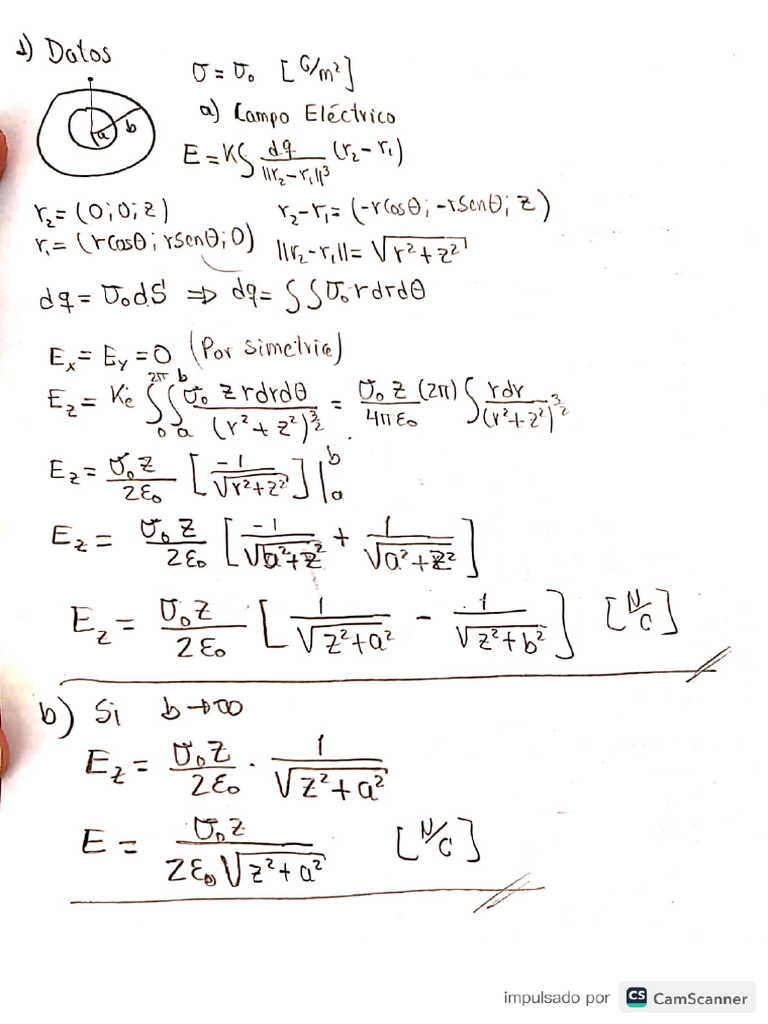 1) Datos
a b
σ = σ₀ [C/m²]
a) Campo Eléctrico
E = K∫ dq/||r₂-r₁||³ (r₂-r₁)
r₂ = (0; 0; z)
r₂-r₁ = (-rCosθ; -rSenθ; z)
r₁ = (rCosθ; rSenθ; 0)
||r₂-r₁|| = √(r²+z²)
dq = σ₀dS ⇒ dq = ∫∫σ₀rdrdθ
Eₓ = Eᵧ = 0 (Por simetria)
E_z = Ke ∫₀^2π ∫ₐ^b σ₀ z rdrdθ/(r²+z²)^3/2 = σ₀z/4πε₀ (2π) ∫ rdr/(r²+z²)^3/2
E_z = σ₀z/2ε₀ [-1/√(r²+z²)] |ₐ^b
E_z = σ₀z/2ε₀ [-1/√(b²+z²) + 1/√(a²+z²)]
E_z = σ₀z/2ε₀ [1/√(z²+a²) - 1/√(z²+b²)] [N/C]
b) Si b→∞
E_z = σ₀z/2ε₀ · 1/√(z²+a²)
E = σ₀z/2ε₀√(z²+a²) [N/C]
impulsado por CS CamScanner